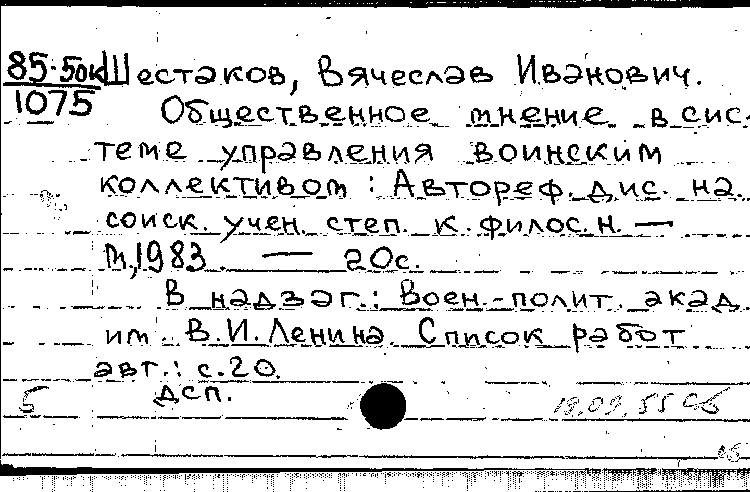 85-50к Шестаков, Вячеслав Иванович.
1075
Общественное мнение в сис-
теме управления воинским
коллективом : Автореф. дис. на
соиск. учен. степ. к. филос. н. —
М., 1983. — 20с.
В надзаг.: Воен.-полит. акад.
им. В.И. Ленина. Список работ
авт.: с.20.
ДСП.
5